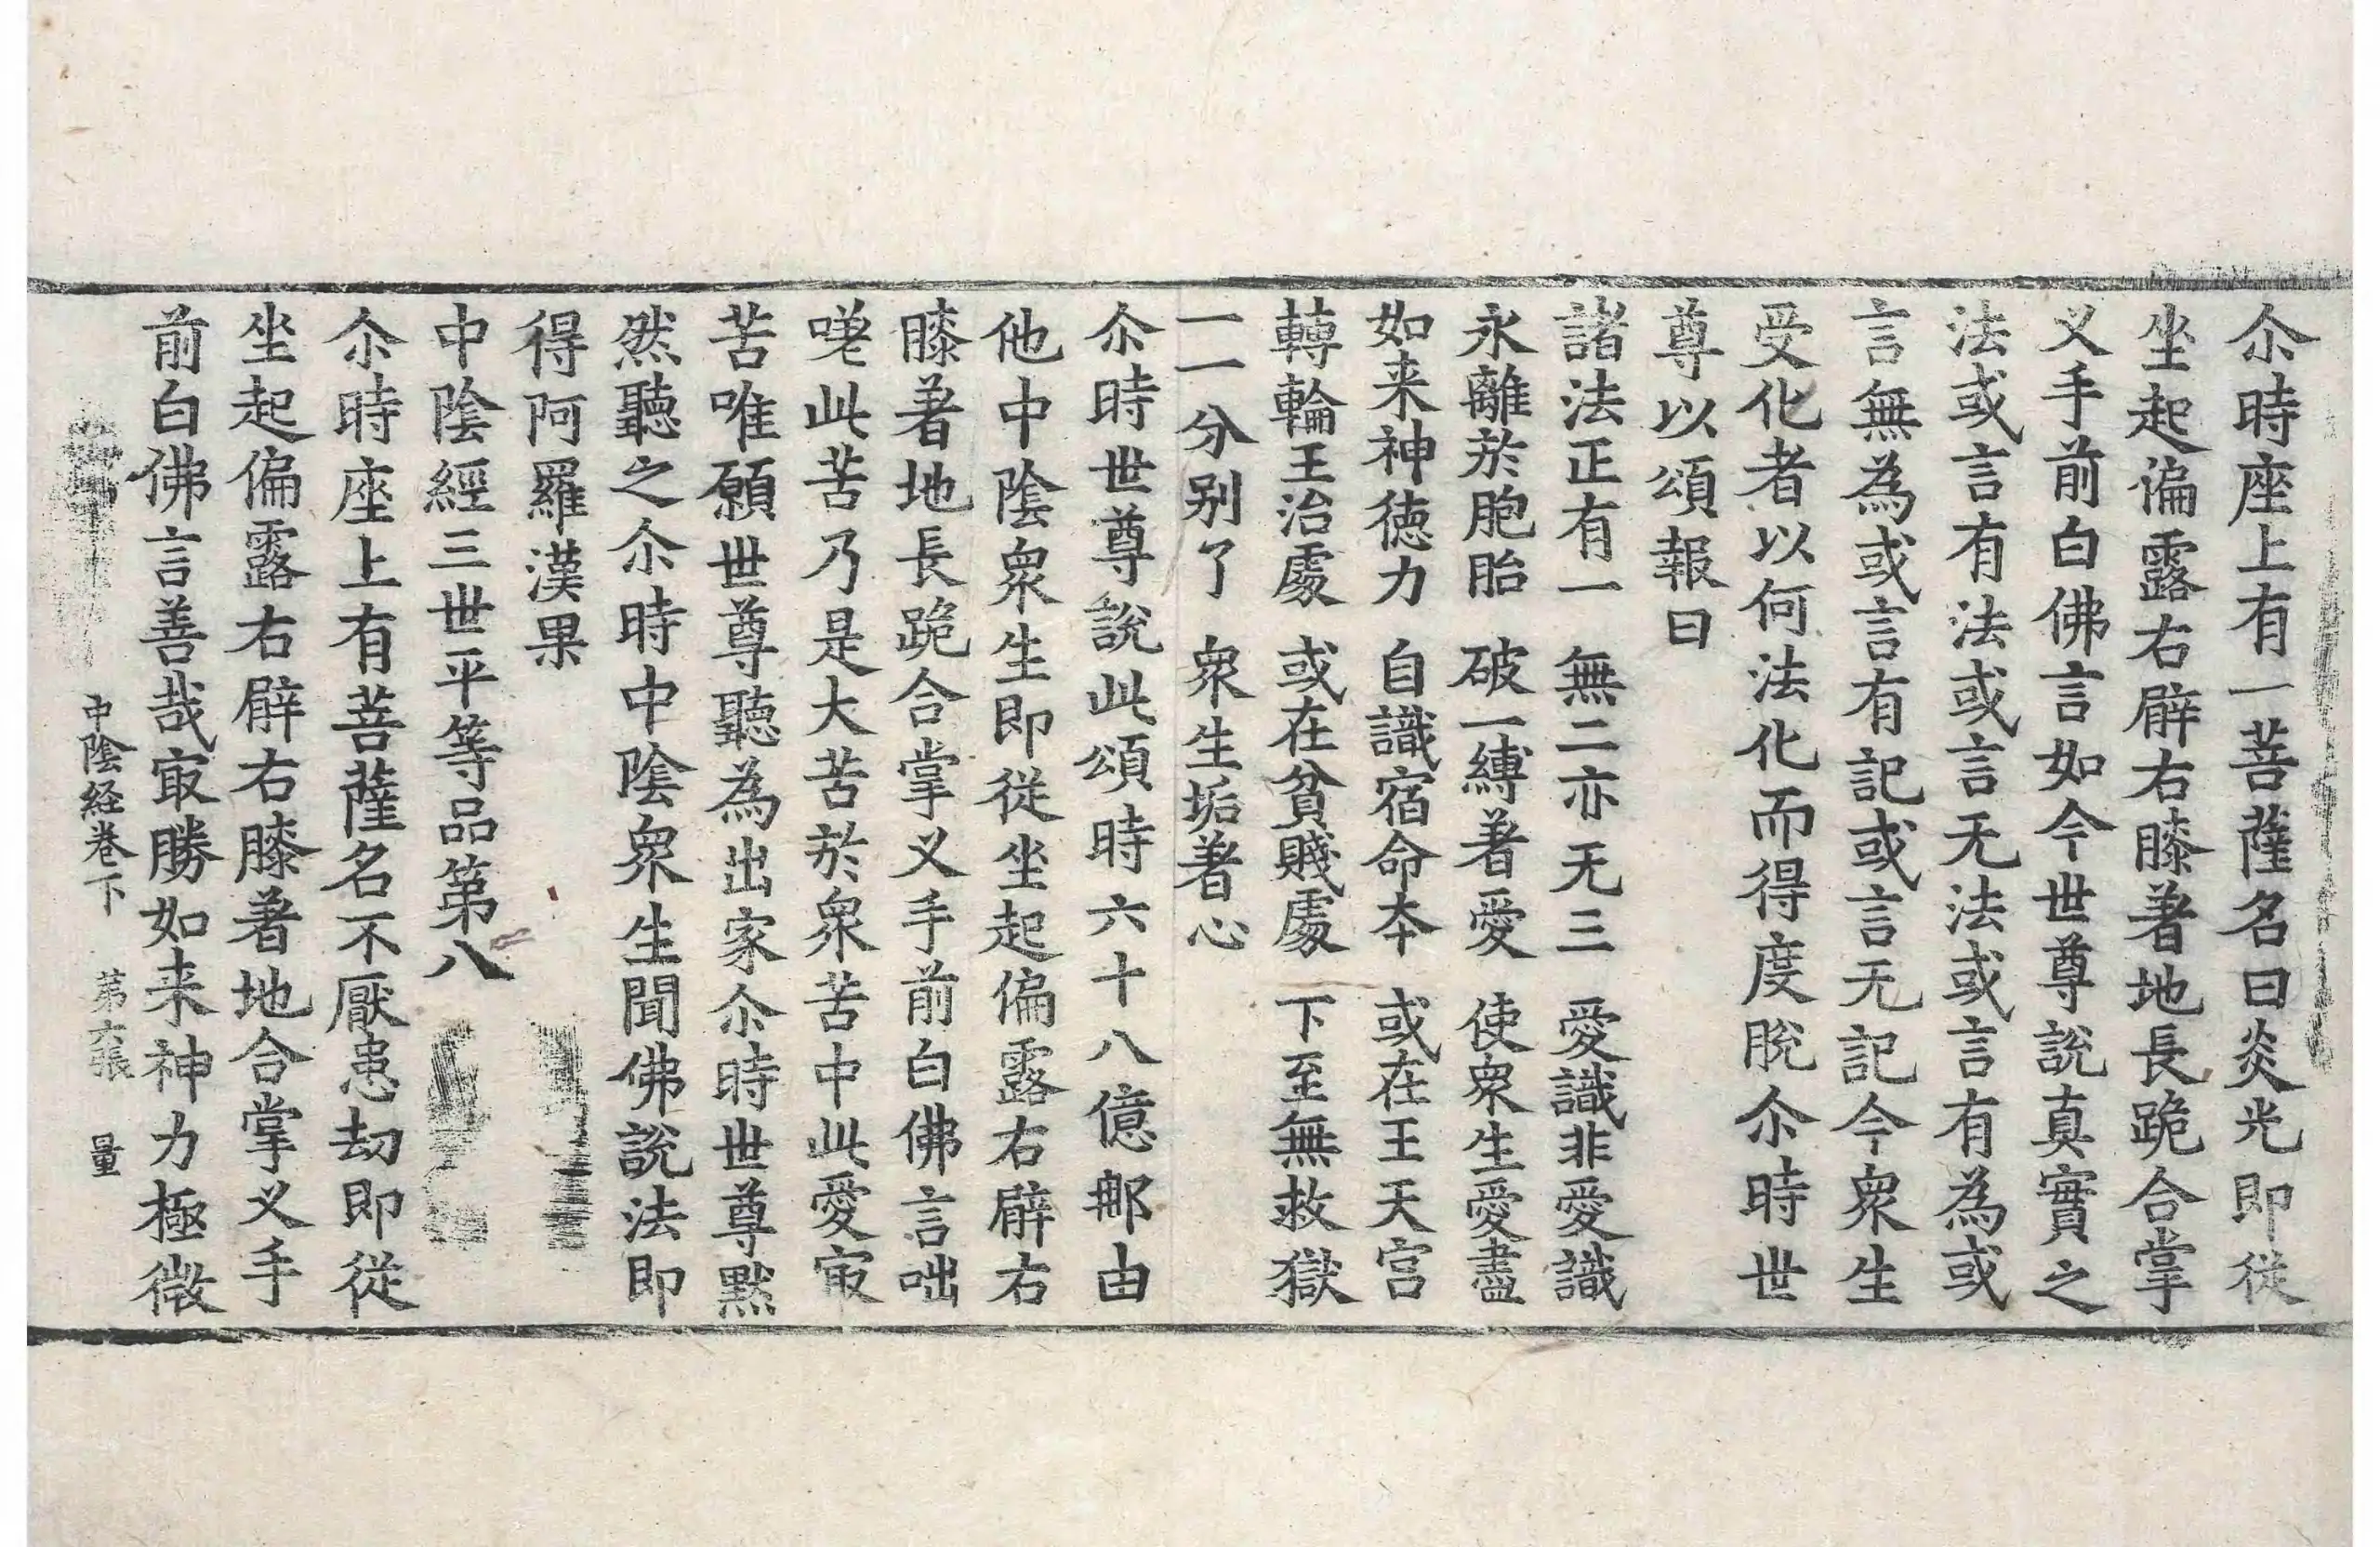 尒時座上有一菩薩名曰炎光即從
坐起偏露右臂右膝著地長跪合掌
叉手前白佛言如今世尊說真實之
法或言有法或言无法或言有為或
言無為或言有記或言无記今衆生
受化者以何法化而得度脫尒時世
尊以頌報曰
諸法正有一　無二亦无三　愛識非愛識
永離於胞胎　破一縛著愛　使衆生愛盡
如来神德力　自識宿命本　或在王天宮
轉輪王治處　或在貧賤處　下至無救獄
一一分別了　衆生垢著心
尒時世尊說此頌時六十八億那由
他中陰衆生即從坐起偏露右臂右
膝著地長跪合掌叉手前白佛言咄
嗟此苦乃是大苦於衆苦中此愛㝡
苦唯願世尊聽為出家尒時世尊默
然聽之尒時中陰衆生聞佛說法即
得阿羅漢果
中陰經三世平等品第八
尒時座上有菩薩名不厭患劫即從
坐起偏露右臂右膝著地合掌叉手
前白佛言善哉㝡勝如来神力極微
中陰経卷下　第六張　量